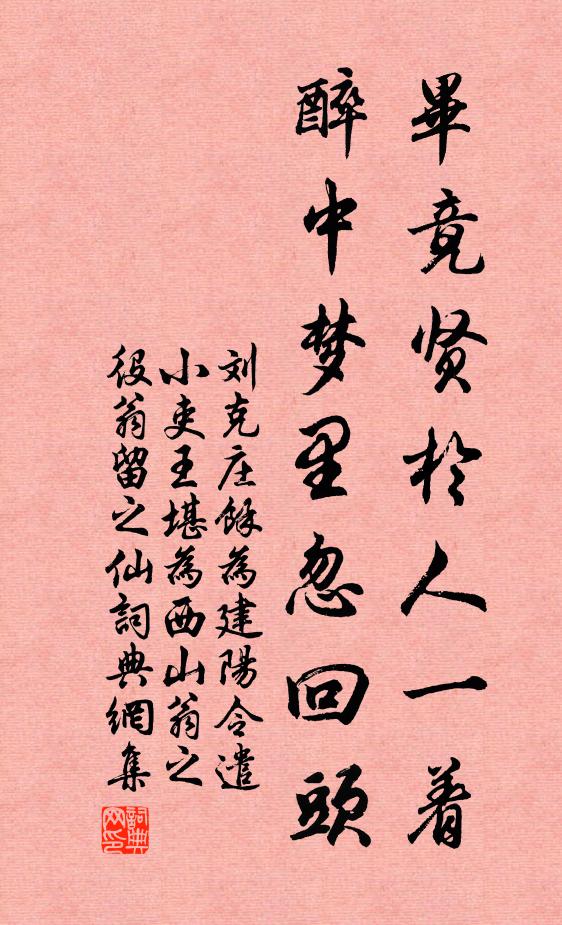 畢竟贤於人一着
醉中梦里忽回頭
刘克庄餘為建陽令遣
小吏王堪為西山翁之
役翁留之仙詞典網集
詞典
网印